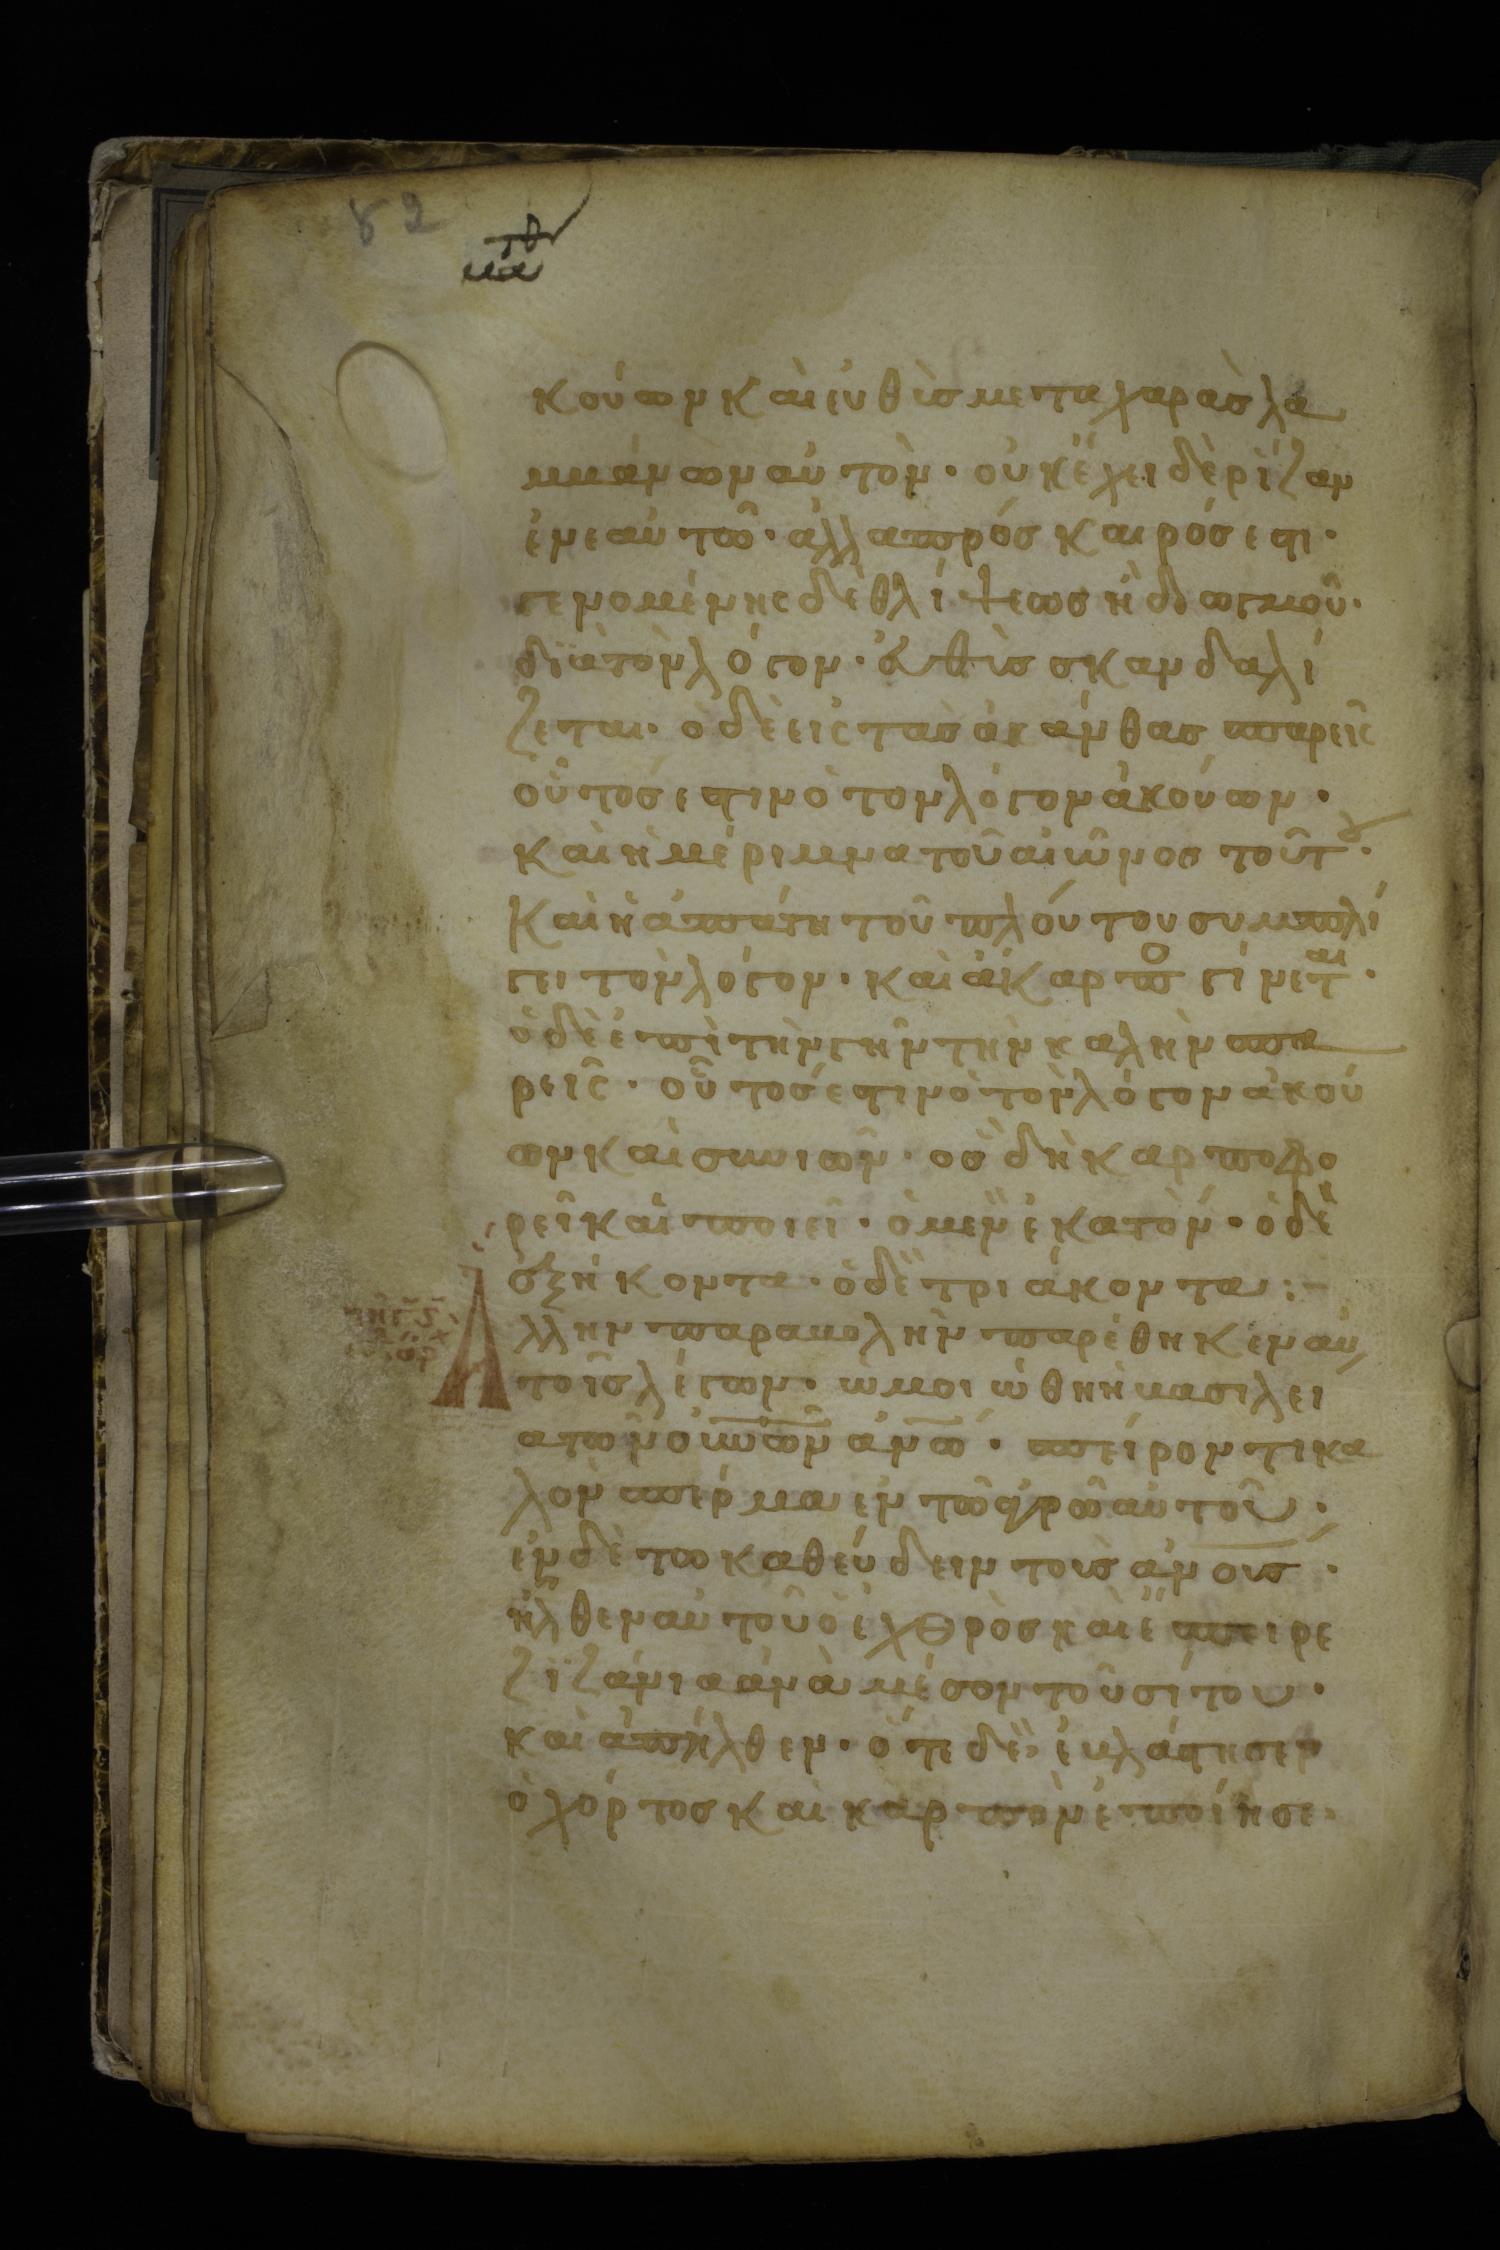 82
κούων καὶ ἐυθὺς μετα χαρὰς λα
μβάνων αὐτὸν · οὐκ ἔχει δὲ ρίζαν
ἐν εαὐτῶ · ἀλλα πρόσκαιρός εστι ·
γενομένης δὲ θλίψεως ἢ διωγμοῦ ·
διὰ τὸν λόγον · ἐυθὺς σκανδαλί
ζεται · ὁ δὲ εἰς τὰς ἀκάνθας σπαρεὶς
οὗτός εστιν ὁ τον λόγον ἀκούων ·
καὶ ἡ μέριμνα τοῦ αἰῶνος τούτ ·
καὶ ἡ ἀπάτη τοῦ πλούτου συμπνί
γει τὸν λόγον · καὶ ἄκαρπο γίνεται ·
ὁ δὲ ἐπὶ τὴν γῆν τὴν καλὴν σπα
ρεὶς · οὗτός εστιν ὁ τὸν λόγον ἀκού
ων καὶ συνιῶν · ὃς δὴ καρποφο
ρεῖ καὶ ποιεῖ · ὁ μὲν ἑκατὸν · ὁ δὲ
ἑξήκοντα · ὁ δὲ τριάκοντα :-
Αλλην παραβολὴν παρέθηκεν αὐ
τοῖς λέγων · ὡμοιώθη ἡ βασιλεί
α τῶν οὐνῶν ἀνῶ · σπείροντι κα
λὸν σπέρμα ἐν τῶ ἀγρῶ αὐτοῦ ·
ἐν δὲ τω καθεύδειν τοὺς ἀνους ·
ἦλθεν αὐτοῦ ὁ ἐχθρὸς καὶ ἔσπειρε
ζιζάνια ἀνὰ μέσον τοῦ σίτου ·
καὶ ἀπῆλθεν · ὅτε δὲ ἐβλάστησεν
ὁ χόρτος καὶ καρπὸν ἐποίησε ·